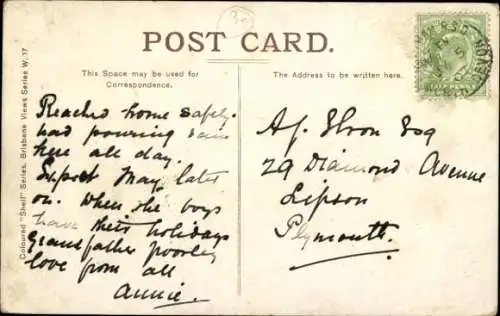 30
POST CARD.
This Space may be used for
Correspondence.
The Address to be written here.
Coloured "Shell" Series. Brisbane Views Series W. 17
Reached home safely.
had pouring rain
here all day.
Expect May later
on. When the boys
have their holidays
Grandfather poorley
love from all
Annie.
29 Diamond Avenue
Lipson
Plymouth.